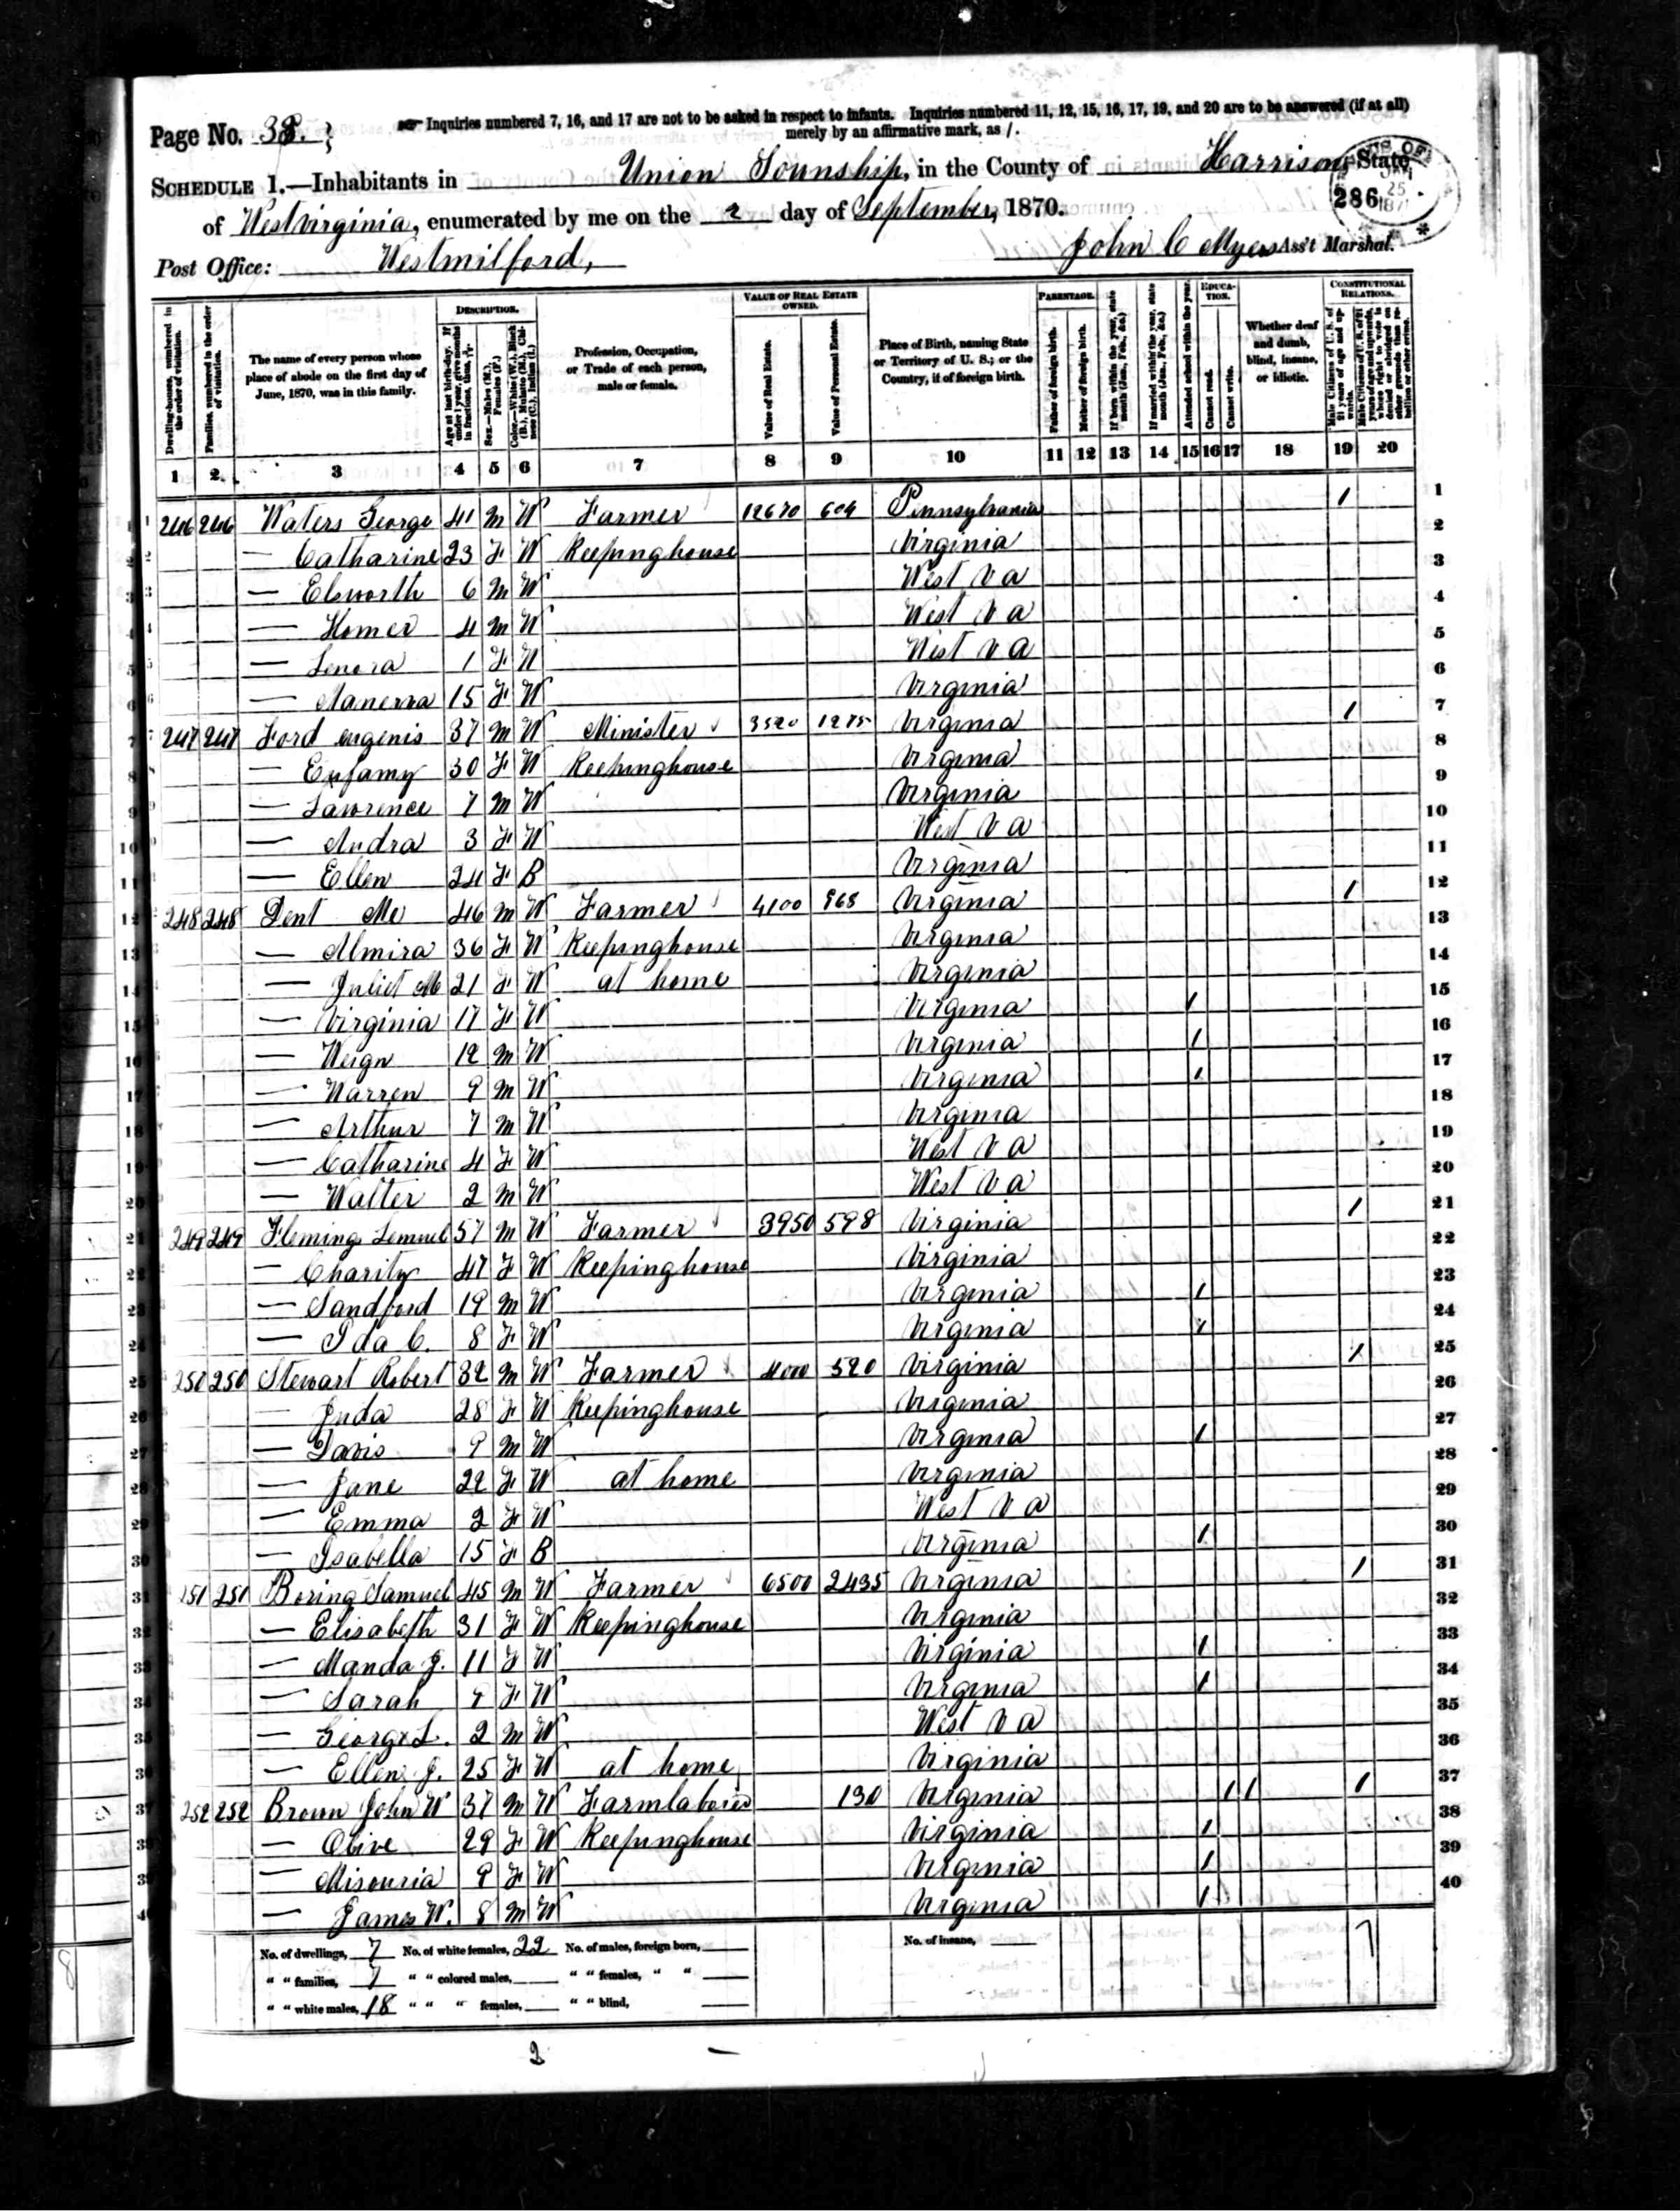 Page No. 38.
Inquiries numbered 7, 16, and 17 are not to be asked in respect to infants. Inquiries numbered 11, 12, 15, 16, 17, 19, and 20 are to be answered (if at all)
merely by an affirmative mark, as /.
SCHEDULE 1.—Inhabitants in Union Township, in the County of Harrison, State
of Westvirginia, enumerated by me on the 2 day of September, 1870.
286
Post Office: Westmilford,
John C Myers Ass't Marshal.
Dwelling-houses, numbered in the order of visitation.
Families, numbered in the order of visitation.
The name of every person whose place of abode on the first day of June, 1870, was in this family.
DESCRIPTION.
Age at last birth-day. If under 1 year, give months in fractions, thus, 3/12.
Sex.—Males (M.), Females (F.)
Color.—White (W.), Black (B.), Mulatto (M.), Chinese (C.), Indian (I.)
Profession, Occupation, or Trade of each person, male or female.
VALUE OF REAL ESTATE OWNED.
Value of Real Estate.
Value of Personal Estate.
Place of Birth, naming State or Territory of U. S.; or the Country, if of foreign birth.
PARENTAGE.
Father of foreign birth.
Mother of foreign birth.
If born within the year, state month (Jan., Feb., &c.)
If married within the year, state month (Jan., Feb., &c.)
Attended school within the year.
EDUCATION.
Cannot read.
Cannot write.
Whether deaf and dumb, blind, insane, or idiotic.
CONSTITUTIONAL RELATIONS.
Male Citizens of U. S. of 21 years of age and upwards.
Male Citizens of U. S. of 21 years of age and upwards, where right to vote is denied or abridged on other grounds than rebellion or other crime.
1 2 3 4 5 6 7 8 9 10 11 12 13 14 15 16 17 18 19 20
1 246 246 Waters George 41 M W Farmer 12670 604 Pennsylvania / 1
2 — Catharine 23 F W Keepinghouse Virginia 2
3 — Elsworth 6 M W West Va 3
4 — Homer 4 M W West Va 4
5 — Lenora 1 F W West Va 5
6 — 15 F W Virginia 6
7 247 247 Ford eugenis 37 M W Minister 3520 1275 Virginia / 7
8 — Eufamy 30 F W Keepinghouse Virginia 8
9 — Lawrence 7 M W Virginia 9
10 — Audra 3 F W West Va 10
11 — Ellen 24 F B Virginia 11
12 248 248 Dent Me 46 M W Farmer 4100 968 Virginia / 12
13 — Almira 36 F W Keepinghouse Virginia 13
14 — Juliet M 21 F W at home Virginia 14
15 — Virginia 17 F W Virginia / 15
16 — Weign 12 M W Virginia / 16
17 — Warren 9 M W Virginia / 17
18 — Arthur 7 M W Virginia 18
19 — Catharine 4 F W West Va 19
20 — Walter 2 M W West Va 20
21 249 249 Fleming Lemuel 57 M W Farmer 3950 598 Virginia / 21
22 — Charity 47 F W Keepinghouse Virginia 22
23 — Sandford 19 M W Virginia / 23
24 — Ida C. 8 F W Virginia / 24
25 250 250 Stewart Robert 32 M W Farmer 4000 520 Virginia / 25
26 — Juda 28 F W Keepinghouse Virginia 26
27 — Davis 9 M W Virginia / 27
28 — Jane 22 F W at home Virginia 28
29 — Emma 2 F W West Va 29
30 — Isabella 15 F B Virginia / 30
31 251 251 Boring Samuel 45 M W Farmer 6500 2435 Virginia / 31
32 — Elisabeth 31 F W Keepinghouse Virginia 32
33 — Manda J. 11 F W Virginia / 33
34 — Sarah 9 F W Virginia / 34
35 — George L. 2 M W West Va 35
36 — Ellen J. 25 F W at home Virginia 36
37 252 252 Brown John W 37 M W Farmlaborer 130 Virginia / / / 37
38 — Olive 29 F W Keepinghouse Virginia / 38
39 — Misouria 9 F W Virginia / 39
40 — James W. 8 M W Virginia / 40
No. of dwellings, 7 No. of white females, 22 No. of males, foreign born, No. of insane, 7
" " families, 7 " " colored males, " " females, " "
" " white males, 18 " " " females, " " blind,
2